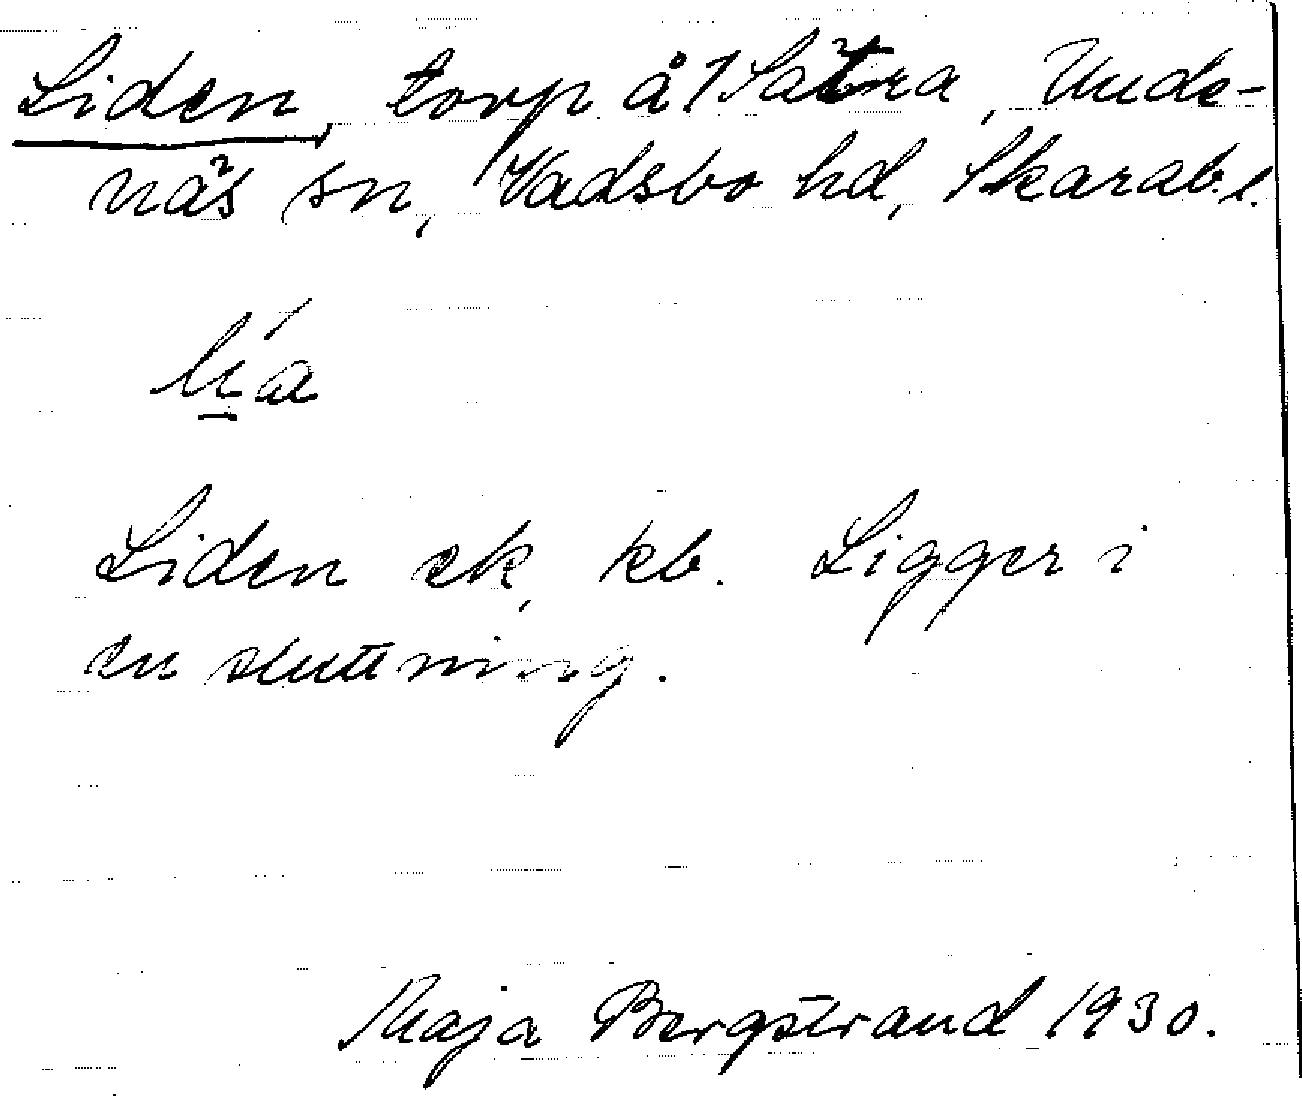 Liden, torp å 1 Sätra, Unde-
näs sn, Vadsbo hd, Skarab. l.
Liden ek, kb. Ligger i
en sluttning.
Maja Bergstrand 1930.